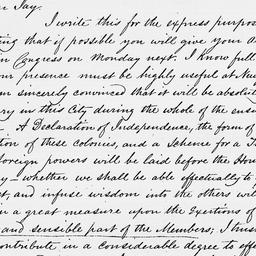 r Jay.
I write this for the express purpos
ing that if possible you will give your
in Congress on Monday next. I know full
ur presence must be highly useful at
m sincerely convinced that it will be absolu
ry in this City during the whole of the ensu
A Declaration of Independence, the form of
tion of these colonies, and a Scheme for a T
foreign powers will be laid before the Hou
y - whether we shall be able effectually to
t, and infuse wisdom into the others will
in a great measure upon the Exertions of
and sensible part of the Members, I trus
ontribute in a considerable degree to effe